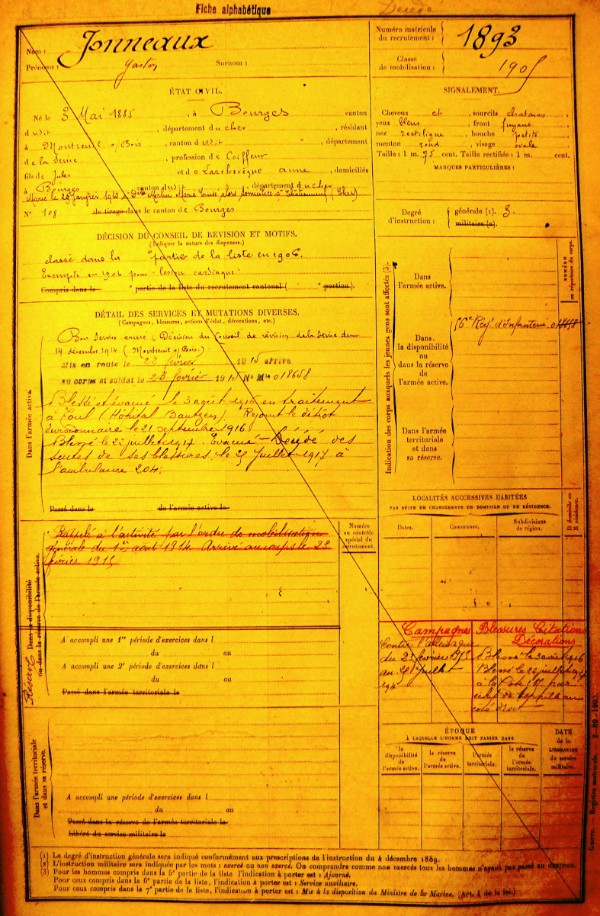 Fiche alphabétique
Décédé
Nom : Jonneaux
Prénoms : Gaston Surnom :
Numéro matricule du recrutement : 1893
Classe de mobilisation : 1905
ÉTAT CIVIL.
Né le 3 Mai 1885, à Bourges canton
d'udit, département du Cher, résidant
à Montreuil s/ Bois canton d'udit département
de la Seine, profession de Coiffeur
fils de Jules et de Larchevêque Anne, domiciliés
à Bourges canton du dit, département du Cher
Marié le 26 janvier 1910 à
N° 108 du tirage dans le canton de Bourges
SIGNALEMENT.
Cheveux et sourcils chatains
yeux bleus, front fuyant
nez rectiligne, bouche petite
menton rond, visage ovale
Taille : 1 m. 75 cent. Taille rectifiée : 1 m. cent.
MARQUES PARTICULIÈRES :
Degré d'instruction : générale (1). 3.
militaire (2).
DÉCISION DU CONSEIL DE REVISION ET MOTIFS.
(Indiquer la nature des dispenses.)
classé dans la partie de la liste en 1906.
Exempté en 1906 pour lésion cardiaque.
Compris dans le partie de la liste du recrutement cantonal ( portion).
DÉTAIL DES SERVICES ET MUTATIONS DIVERSES.
(Campagnes, blessures, actions d'éclat, décorations, etc.)
Bon Service armé : Décision du Conseil de révision de la Seine du
14 décembre 1914 (Montreuil s/ Bois).
Mis en route le 22 février 1915 arrivé
au corps et soldat le 23 février 1915 N° Mle 018658
Blessé et évacué le 3 août 1916 en traitement
à Toul (Hôpital Bautzen). Rejoint le dépôt
divisionnaire le 21 septembre 1916.
Blessé le 22 juillet 1917. Évacué - Décédé des
suites de ses blessures le 25 juillet 1917 à
l'ambulance 204.
Passé dans de l'armée active.
Dans l'armée active.
Indication des corps auxquels les jeunes gens sont affectés (3).
Dans l'armée active.
NUMÉRO au répertoire du corps.
Dans la disponibilité ou dans la réserve de l'armée active.
Rég. d'infanterie
Dans l'armée territoriale et dans sa réserve.
LOCALITÉS SUCCESSIVES HABITÉES
PAR SUITE DE CHANGEMENTS DE DOMICILE OU DE RÉSIDENCE.
Dates. Communes. Subdivisions de région. D domicile ou R résidence.
Rappelé à l'activité par l'ordre de mobilisation
générale du 1er août 1914. Arrivé au corps le 23
février 1915
Numéro au contrôle spécial du recrutement.
Dans la disponibilité ou dans la réserve de l'armée active.
Réserve
A accompli une 1re période d'exercices dans l
du au
A accompli une 2e période d'exercices dans l
du au
Passé dans l'armée territoriale le
Campagnes Blessures Citations
Décorations
Contre l'Allemagne
du 23 février 1915
au 25 juillet
1917
Blessé le 3 août 1916
Blessé le 22 juillet 1917
par
éclat de
ÉPOQUE
À LAQUELLE L'HOMME DOIT PASSER DANS
la disponibilité de l'armée active. la réserve de l'armée active. l'armée territoriale. la réserve de l'armée territoriale.
DATE de la LIBÉRATION du service militaire.
Dans l'armée territoriale et dans sa réserve.
A accompli une période d'exercices dans l
du au
Passé dans la réserve de l'armée territoriale le
Libéré du service militaire le
(1) Le degré d'instruction générale sera indiqué conformément aux prescriptions de l'instruction du 4 décembre 1889.
(2) L'instruction militaire sera indiquée par les mots : exercé ou non exercé. On comprendra comme non exercés tous les hommes n'ayant pas passé au drapeau.
(3) Pour les hommes compris dans la 5e partie de la liste, l'indication à porter est : Ajourné.
Pour ceux compris dans la 6e partie de la liste, l'indication à porter est : Service auxiliaire.
Pour ceux compris dans la 7e partie de la liste, l'indication à porter est : Mis à la disposition du Ministre de la Marine. (Art. 4 de la loi.)